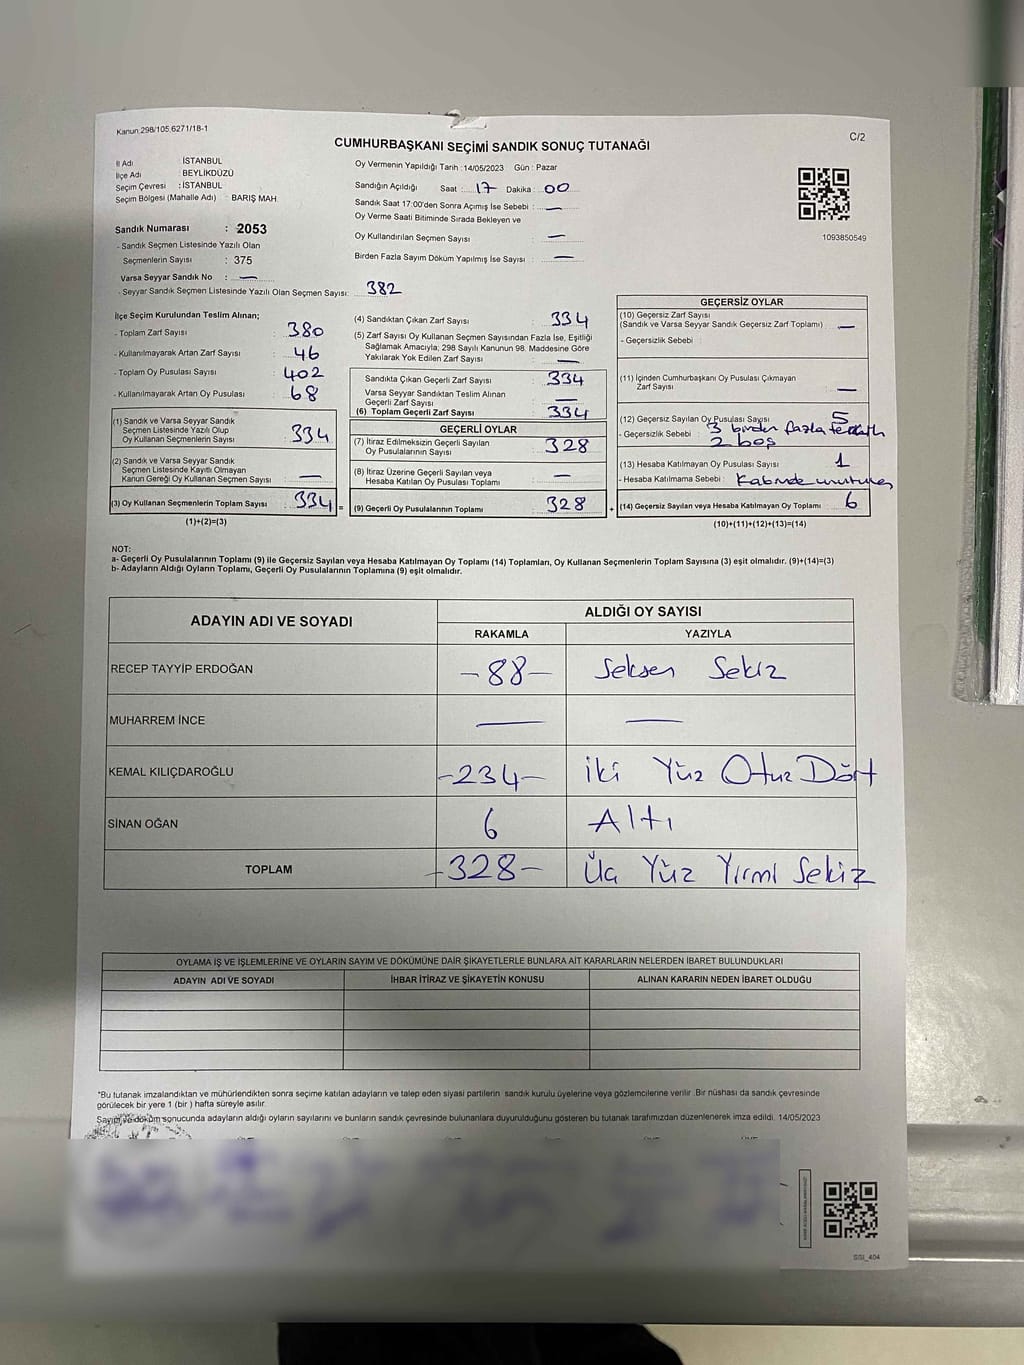 Kanun:298/105,6271/18-1
C/2
CUMHURBAŞKANI SEÇİMİ SANDIK SONUÇ TUTANAĞI
İl Adı : İSTANBUL
İlçe Adı : BEYLİKDÜZÜ
Seçim Çevresi : İSTANBUL
Seçim Bölgesi (Mahalle Adı) : BARIŞ MAH.
Sandık Numarası : 2053
- Sandık Seçmen Listesinde Yazılı Olan
Seçmenlerin Sayısı : 375
Varsa Seyyar Sandık No : —
- Seyyar Sandık Seçmen Listesinde Yazılı Olan Seçmen Sayısı: 382
Oy Vermenin Yapıldığı Tarih : 14/05/2023 Gün : Pazar
Sandığın Açıldığı Saat : 17 Dakika : 00
Sandık Saat 17:00'den Sonra Açımış İse Sebebi : —
Oy Verme Saati Bitiminde Sırada Bekleyen ve
Oy Kullandırılan Seçmen Sayısı : —
Birden Fazla Sayım Döküm Yapılmış İse Sayısı : —
1093850549
İlçe Seçim Kurulundan Teslim Alınan;
- Toplam Zarf Sayısı : 380
- Kullanılmayarak Artan Zarf Sayısı : 46
- Toplam Oy Pusulası Sayısı : 402
- Kullanılmayarak Artan Oy Pusulası : 68
(1) Sandık ve Varsa Seyyar Sandık
Seçmen Listesinde Yazılı Olup
Oy Kullanan Seçmenlerin Sayısı : 334
(2) Sandık ve Varsa Seyyar Sandık
Seçmen Listesinde Kayıtlı Olmayan
Kanun Gereği Oy Kullanan Seçmen Sayısı : —
(3) Oy Kullanan Seçmenlerin Toplam Sayısı : 334 =
(1)+(2)=(3)
(4) Sandıktan Çıkan Zarf Sayısı : 334
(5) Zarf Sayısı Oy Kullanan Seçmen Sayısından Fazla İse, Eşitliği
Sağlamak Amacıyla; 298 Sayılı Kanunun 98. Maddesine Göre
Yakılarak Yok Edilen Zarf Sayısı : —
Sandıkta Çıkan Geçerli Zarf Sayısı : 334
Varsa Seyyar Sandıktan Teslim Alınan
Geçerli Zarf Sayısı : —
(6) Toplam Geçerli Zarf Sayısı : 334
GEÇERLİ OYLAR
(7) İtiraz Edilmeksizin Geçerli Sayılan
Oy Pusulalarının Sayısı : 328
(8) İtiraz Üzerine Geçerli Sayılan veya
Hesaba Katılan Oy Pusulası Toplamı : —
(9) Geçerli Oy Pusulalarının Toplamı : 328 +
GEÇERSİZ OYLAR
(10) Geçersiz Zarf Sayısı
(Sandık ve Varsa Seyyar Sandık Geçersiz Zarf Toplamı) : —
- Geçersizlik Sebebi :
(11) İçinden Cumhurbaşkanı Oy Pusulası Çıkmayan
Zarf Sayısı : —
(12) Geçersiz Sayılan Oy Pusulası Sayısı : 5
- Geçersizlik Sebebi : 3 birden fazla
2 boş
(13) Hesaba Katılmayan Oy Pusulası Sayısı : 1
- Hesaba Katılmama Sebebi : Kabinde
(14) Geçersiz Sayılan veya Hesaba Katılmayan Oy Toplamı : 6
(10)+(11)+(12)+(13)=(14)
NOT:
a- Geçerli Oy Pusulalarının Toplamı (9) ile Geçersiz Sayılan veya Hesaba Katılmayan Oy Toplamı (14) Toplamları, Oy Kullanan Seçmenlerin Toplam Sayısına (3) eşit olmalıdır. (9)+(14)=(3)
b- Adayların Aldığı Oyların Toplamı, Geçerli Oy Pusulalarının Toplamına (9) eşit olmalıdır.
ADAYIN ADI VE SOYADI
ALDIĞI OY SAYISI
RAKAMLA YAZIYLA
RECEP TAYYİP ERDOĞAN -88- Seksen Sekiz
MUHARREM İNCE — —
KEMAL KILIÇDAROĞLU -234- İki Yüz Otuz Dört
SİNAN OĞAN 6 Altı
TOPLAM -328- Üç Yüz Yirmi Sekiz
OYLAMA İŞ VE İŞLEMLERİNE VE OYLARIN SAYIM VE DÖKÜMÜNE DAİR ŞİKAYETLERLE BUNLARA AİT KARARLARIN NELERDEN İBARET BULUNDUKLARI
ADAYIN ADI VE SOYADI İHBAR İTİRAZ VE ŞİKAYETİN KONUSU ALINAN KARARIN NEDEN İBARET OLDUĞU
*Bu tutanak imzalandıktan ve mühürlendikten sonra seçime katılan adayların ve talep eden siyasi partilerin sandık kurulu üyelerine veya gözlemcilerine verilir. Bir nüshası da sandık çevresinde
görülecek bir yere 1 (bir ) hafta süreyle asılır.
Sayım ve döküm sonucunda adayların aldığı oyların sayılarını ve bunların sandık çevresinde bulunanlara duyurulduğunu gösteren bu tutanak tarafımızdan düzenlenerek imza edildi. 14/05/2023
SSI_404